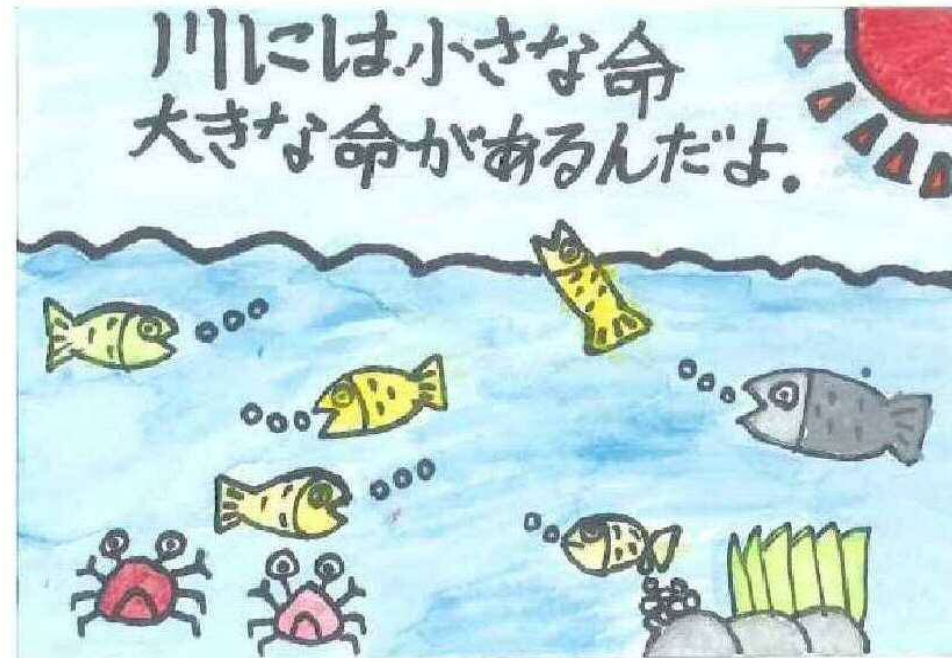 川には小さな命
大きな命があるんだよ.